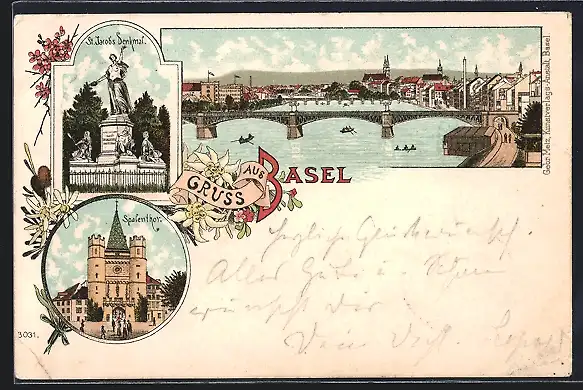 St. Jacobs Denkmal.
GRUSS AUS BASEL
Spalenthor.
3031.
Gebr. Metz, Kunstverlags-Anstalt, Basel.
Herzliche Glückwünsche!
Alles Gute u. Schöne
wünscht dir
Dein